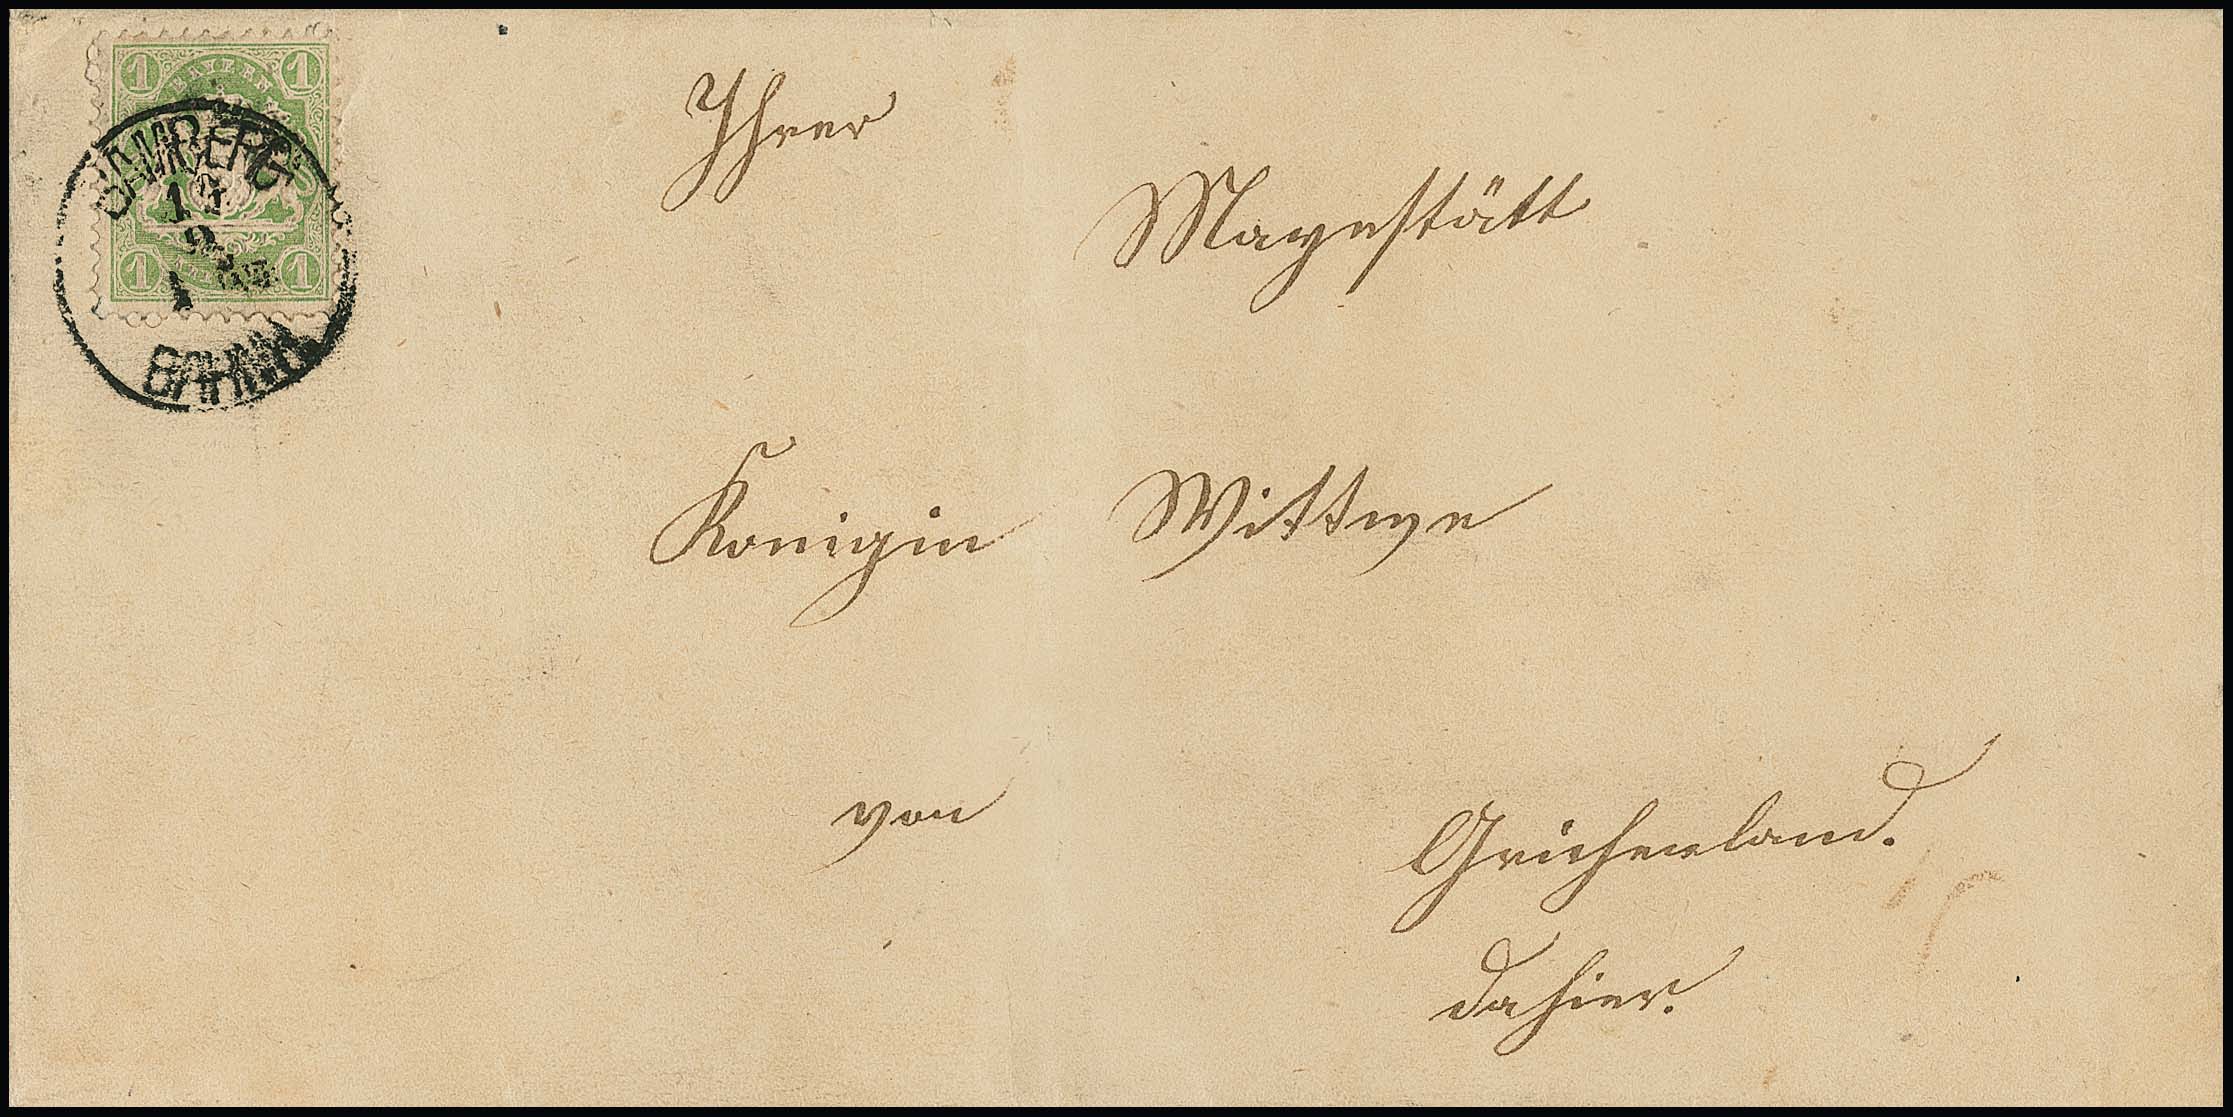 1 1
BAYERN
BAMBERG
1 1
BAHNH
Ihrer
Mayestätt
Konigin Wittwe
von
Grichenland.
dahier.